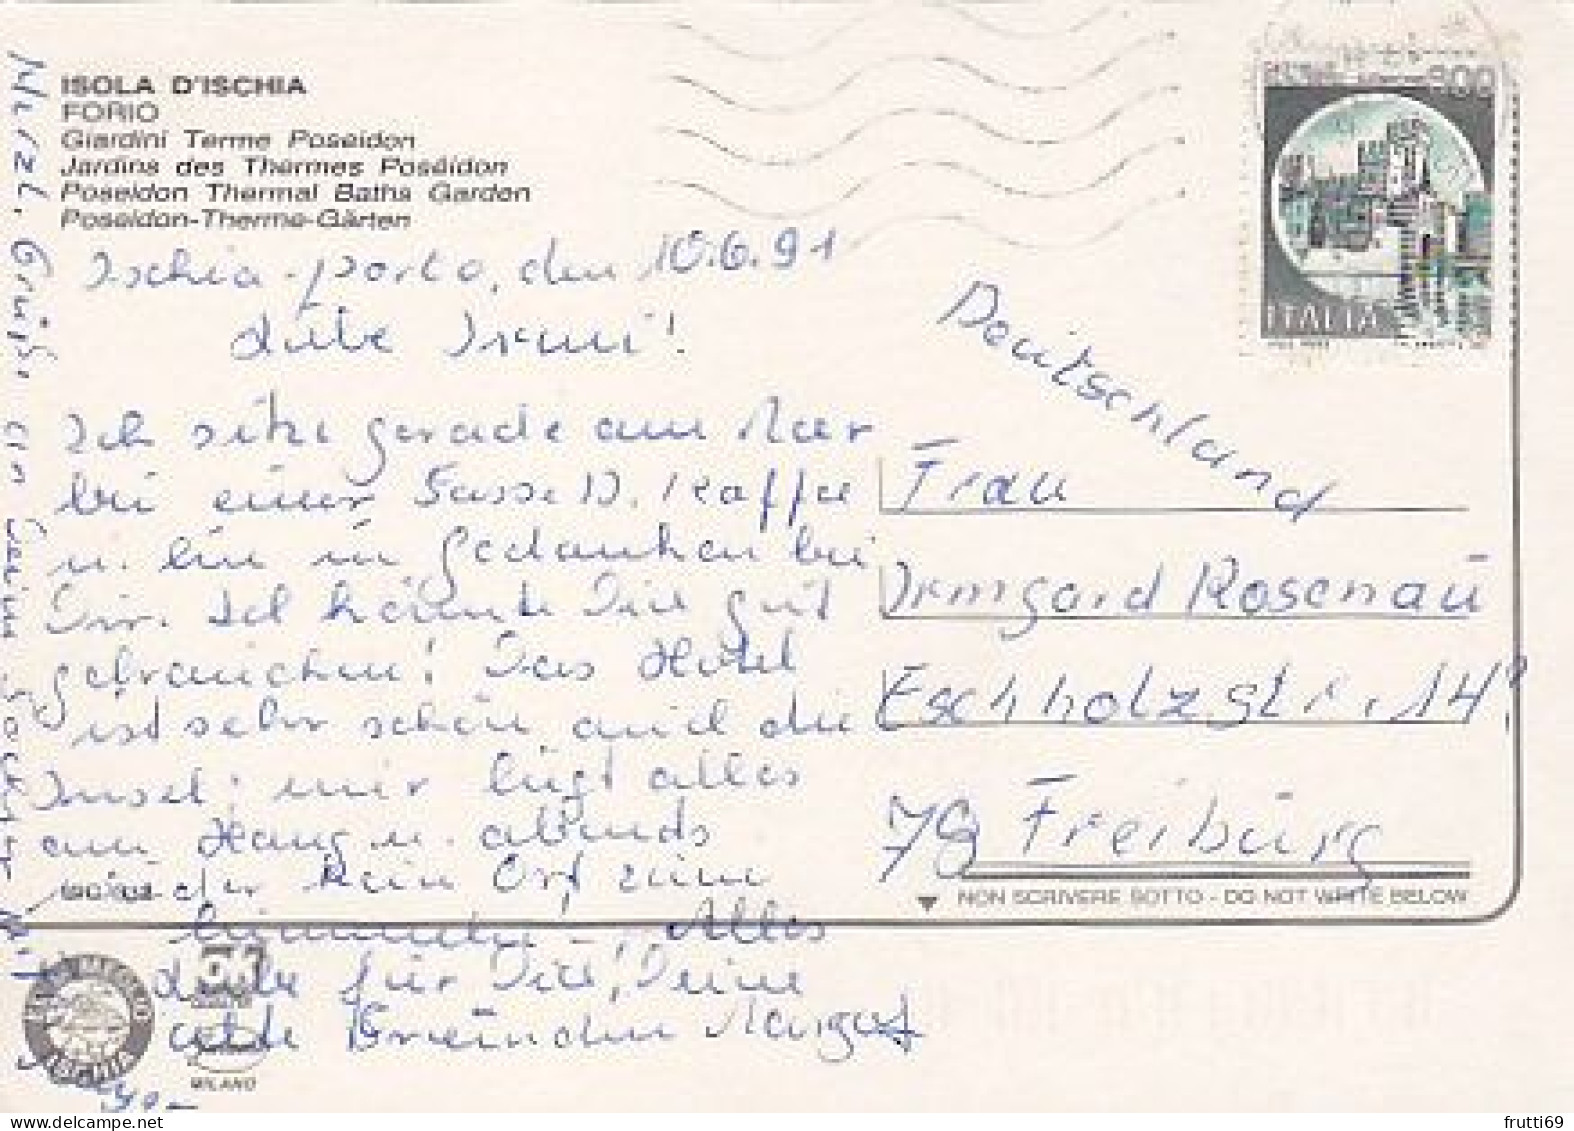 ISOLA D'ISCHIA
FORIO
Giardini Terme Poseidon
Jardins des Thermes Poséidon
Poseidon Thermal Baths Garden
Poseidon-Therme-Gärten
Ischia-porto, den 10.6.91
Liebe Irmi!
Ich sitze gerade am Meer
bei einer Tasse Kaffee
u. bin in Gedanken bei
Dir. Ich könnte Dich gut
gebrauchen! Das Hotel
ist sehr schön und die
Insel; mir liegt alles
am Hang u. abends
ist der kein Ort zum
Alles
Liebe für Dich, Deine
alte Freundin Margot
Herzl. Grüße an
Deutschland
Frau
Irmgard Rosenau
Eschholzstr. 14
78 Freiburg
NON SCRIVERE SOTTO - DO NOT WRITE BELOW
ITALIA
ISCHIA
MILANO
frutti69